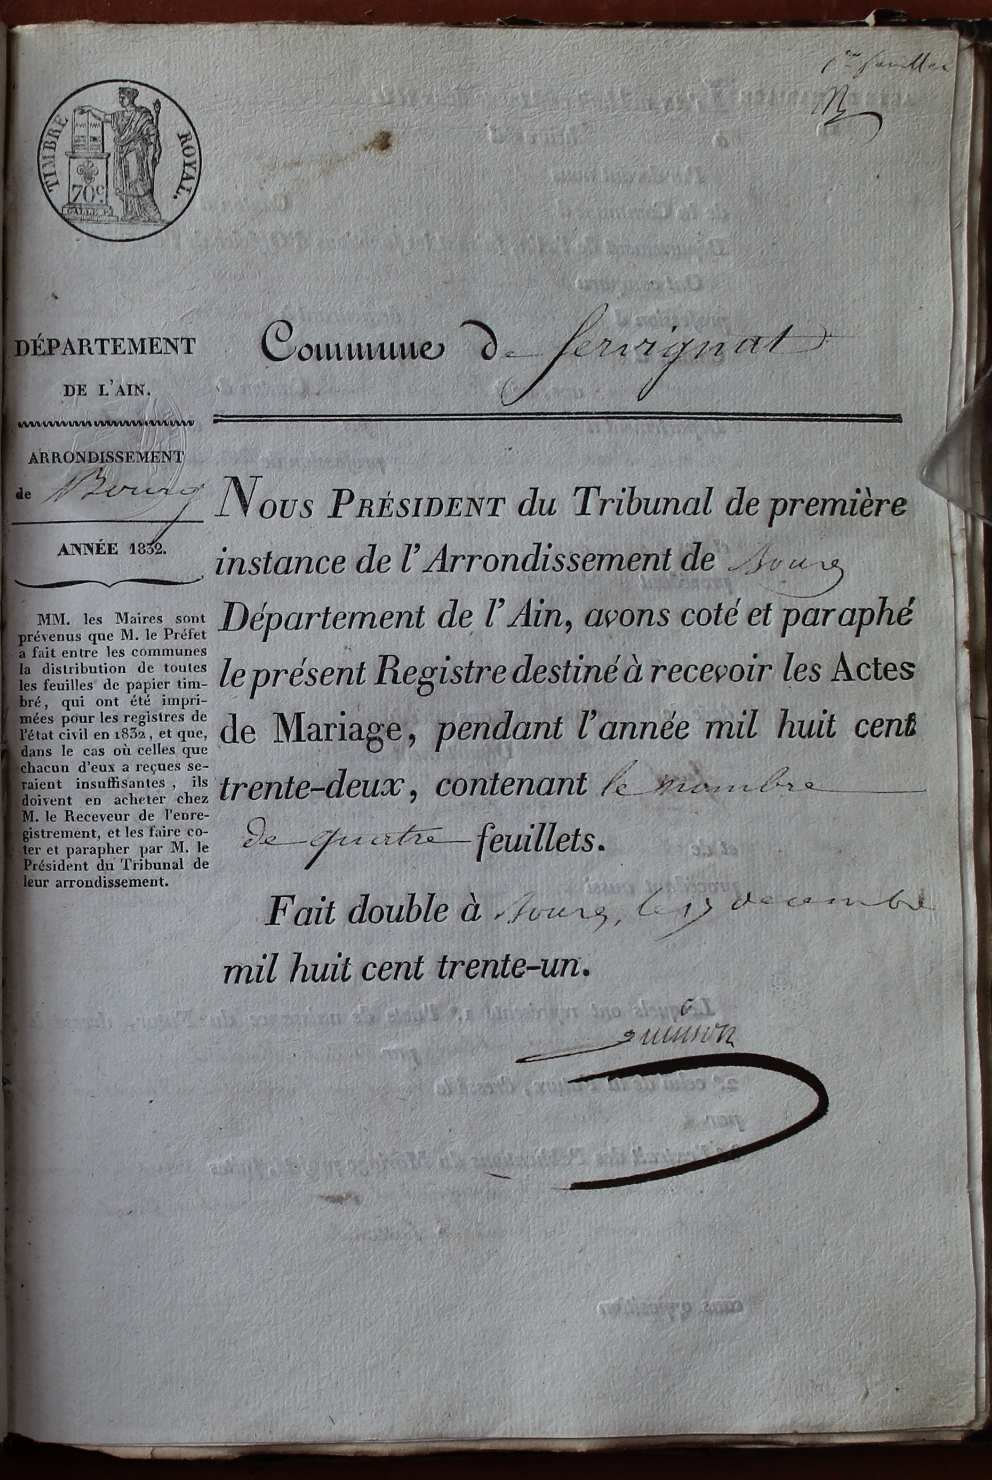 1er feuillet
TIMBRE ROYAL.
70c
DÉPARTEMENT
DE L'AIN.
ARRONDISSEMENT
de Bourg
ANNÉE 1832.
MM. les Maires sont
prévenus que M. le Préfet
a fait entre les communes
la distribution de toutes
les feuilles de papier tim-
bré, qui ont été impri-
mées pour les registres de
l'état civil en 1832, et que,
dans le cas où celles que
chacun d'eux a reçues se-
raient insuffisantes, ils
doivent en acheter chez
M. le Receveur de l'enre-
gistrement, et les faire co-
ter et parapher par M. le
Président du Tribunal de
leur arrondissement.
Commune de Servignat
NOUS PRÉSIDENT du Tribunal de première
instance de l'Arrondissement de Bourg
Département de l'Ain, avons coté et paraphé
le présent Registre destiné à recevoir les Actes
de Mariage, pendant l'année mil huit cent
trente-deux, contenant le nombre
de quatre feuillets.
Fait double à Bourg, le 15 decembre
mil huit cent trente-un.